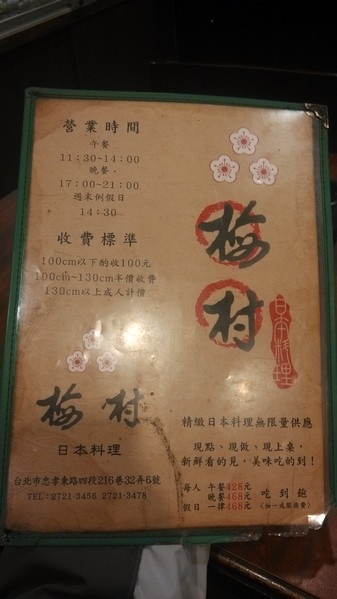 營業時間
午餐
11:30~14:00
晚餐
17:00~21:00
週末例假日
14:30
收費標準
100cm以下酌收100元
100cm~130cm半價收費
130cm以上成人計價
梅村
日本料理
台北市忠孝東路四段216巷32弄6號
TEL:2721-3456 2721-3478
梅村
日本料理
精緻日本料理無限量供應
現點、現做、現上桌,
新鮮看的見,美味吃的到!
每人 午餐428元
晚餐468元 吃到飽
假日 一律468元 (加一成服務費)